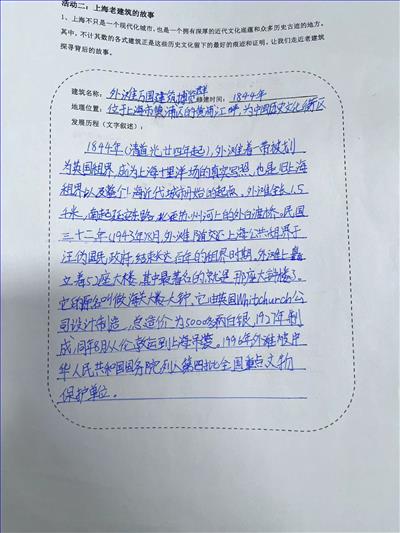 活动二:上海老建筑的故事
1、上海不只是一个现代化城市,也是一个拥有深厚的近代文化底蕴和众多历史古迹的地方。
其中,不计其数的各式建筑正是这些历史文化留下的最好的痕迹和证明,让我们走近老建筑
探寻背后的故事。
建筑名称:外滩万国建筑博览群 修建时间:1844年
地理位置:位于上海市黄浦区的黄浦江畔,为中国历史文化街区
发展历程(文字叙述):
1844年(清道光廿四年起),外滩着一带被划
为英国租界,成为上海十里洋场的真实写照,也是旧上海
租界以及整个上海近代城市开始的起点。外滩全长1.5
千米,南起延安东路,北至苏州河上的外白渡桥。民国
三十二年(1943年)8月,外滩随交还上海公共租界于
汪伪国民政府,结束长达百年的租界时期,外滩上矗
立着52座大楼,其中最著名的就是那座大钟楼了。
它的原名叫做海关大楼大钟,它由英国Whitchurch公
司设计制造,总造价为5000多两白银,1927年制
成,同年8月从伦敦运到上海吊装。1996年外滩被中
华人民共和国国务院列入第四批全国重点文物
保护单位。